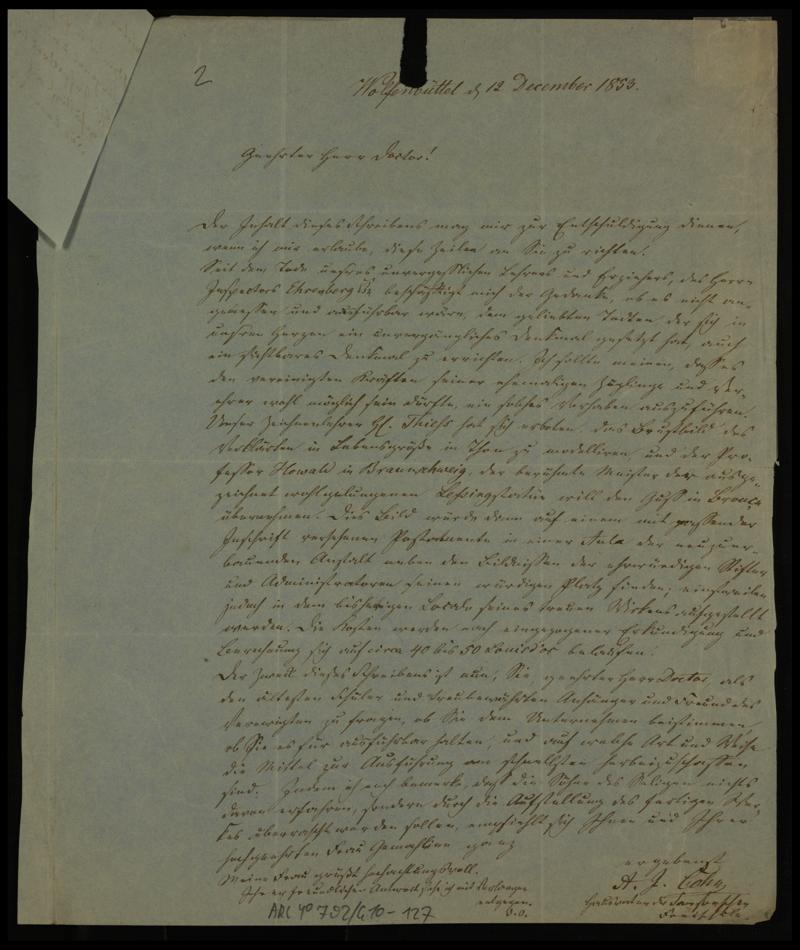 2
Wolfenbüttel d 12 December 1853.
Geehrter Herr Doctor!
Der Inhalt dieses Schreibens mag mir zur Entschuldigung dienen,
wenn ich mir erlaube, diese Zeilen an Sie zu richten.
Seit dem Tode unsres unvergesslichen Lehrers und Erziehers, des Herrn
Inspectors Ehrenberg beschäftigt mich der Gedanke, ob es nicht an-
gemessen und ausführbar wäre, dem geliebten Todten der sich in
unsren Herzen ein unvergängliches Denkmal gesetzt hat, auch
ein sichtbares Denkmal zu errichten. Ich sollte meinen, dass es
den vereinigten Kräften seiner ehemaligen Zöglinge und Ver-
ehrer wohl möglich sein dürfte, ein solches Vorhaben auszuführen.
Unser Zeichnenlehrer H. Thiels hat sich erboten das Brustbild des
Verklärten in Lebensgröße in Thon zu modelliren und der Pro-
fessor Howald in Braunschweig, der berühmte Meister der ausge-
zeichnet wohlgelungenen Lessingstatüe will den Guss in Bronce
übernehmen. Dies Bild würde dann auf einem mit passender
Inschrift versehenen Postamente in einer Aula der neuzuer-
bauenden Anstalt neben den Bildnissen der ehrwürdigen Stifter
und Administratoren seinen würdigen Platz finden; einstweilen
jedoch in dem bisherigen Locale seines treuen Wirkens aufgestellt
werden. Die Kosten werden nach eingezogener Erkundigung und
Berechnung sich auf circa 40 bis 50 Louisdor belaufen.
Der Zweck dieses Schreibens ist nun, Sie, geehrter Herr Doctor, als
den ältesten Schüler und treubewährten Anhänger und Freund des
Verewigten zu fragen, ob Sie dem Unternehmen beistimmen,
ob Sie es für ausführbar halten, und auf welche Art und Weise
die Mittel zur Ausführung am schnellsten herbeizuschaffen
sind. Indem ich noch bemerke, dass die Söhne des Seligen nichts
davon erfahren, sondern durch die Aufstellung des fertigen Wer-
kes überrascht werden sollen, empfiehlt sich Ihnen und Ihrer
hochgeehrten Frau Gemahlinn ganz
ergebenst
Meine Frau grüßt hochachtungsvoll.
A. J. Cohn,
Ihrer freundlichen Antwort sehe ich mit Verlangen
entgegen.
D. O.
der Samsonschen
Freischule.
ARC 4° 792/G10-127